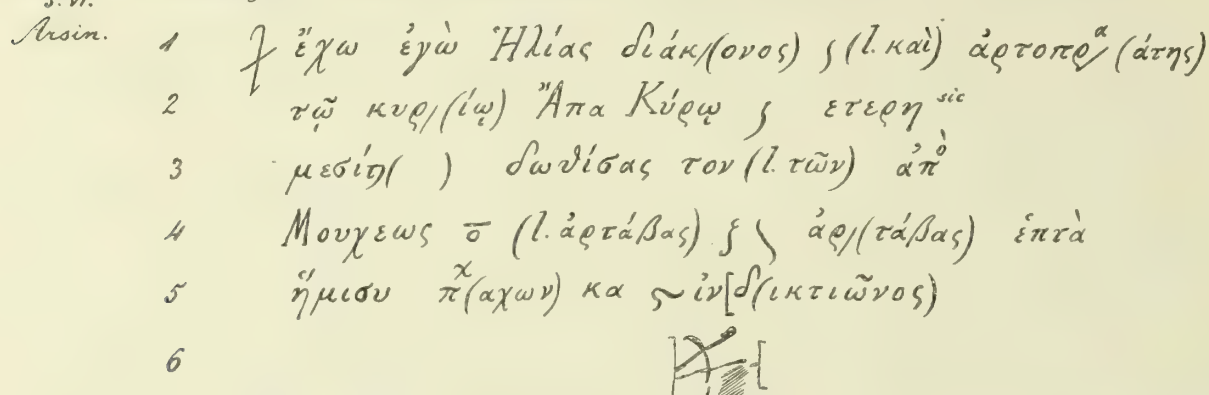 s. VI.
Arsin. 1 ⳨ ἔχω ἐγὼ Ἡλίας διάκ/(ονος) ϛ (l. καὶ) ἀρτοπρ/α (άτης)
2 τῷ κυρ/(ίῳ) Ἄπα Κύρῳ ϛ ετερη sic
3 μεσίτη( ) δωθίσας τον (l. τῶν) ἀπὸ
4 Μουχεως ο̅ (l. ἀρτάβας) ξ \ ἀρ/(τάβας) ἑπτὰ
5 ἥμισυ πχ(αχων) κα ϛ ἰν[δ(ικτιῶνος)
6